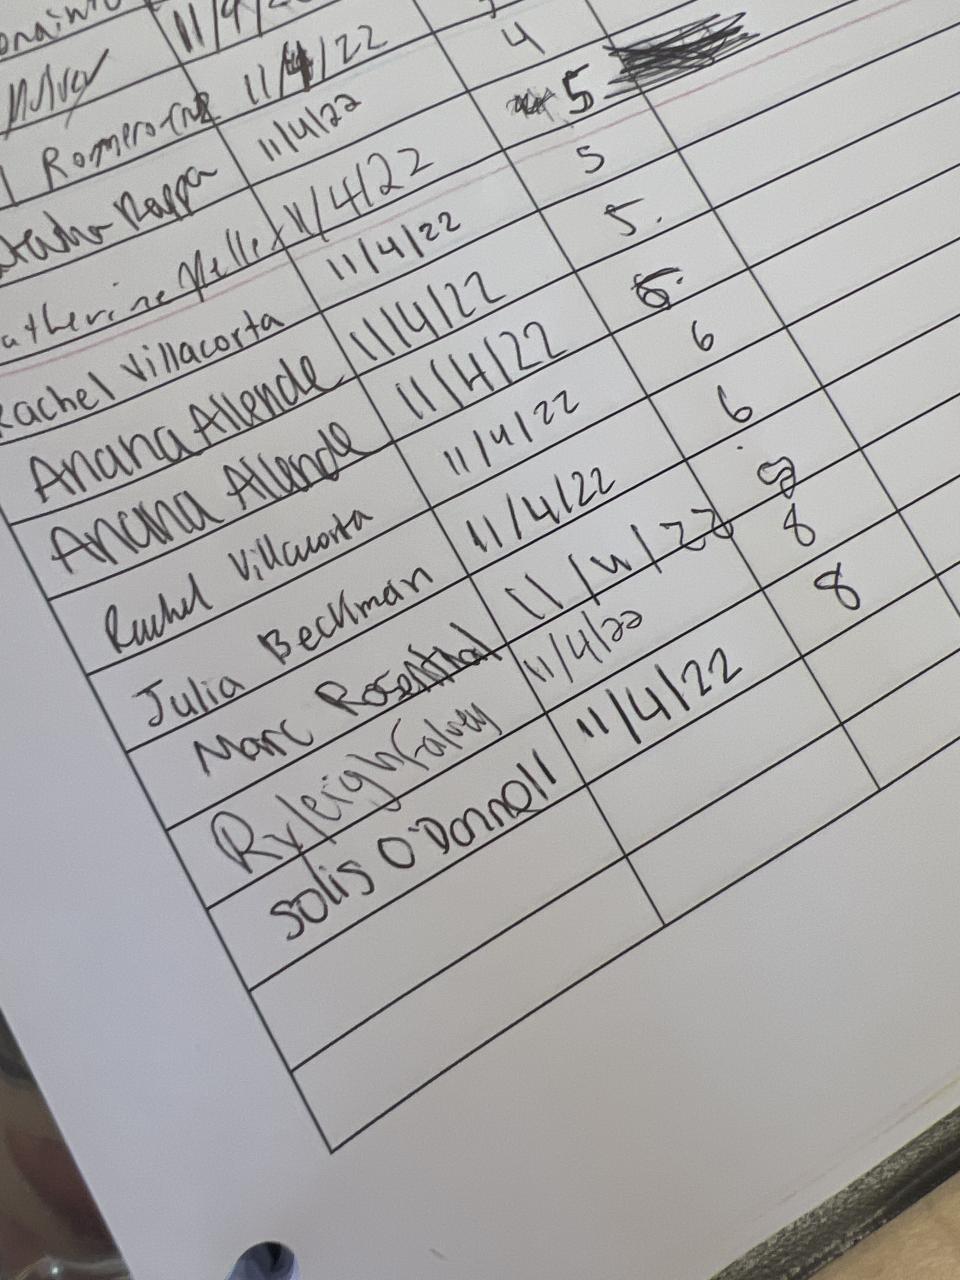 11/4/
Romero-Cruz 11/4/22
Rappa 11/4/22 4
atherine 11/4/22 5
Rachel Villacorta 11/4/22 5
Anana Allende 11/4/22 5.
Anana Allende 11/4/22 6.
Rachel Villacorta 11/4/22 6
Julia Beckman 11/4/22 6
Marc Rosenthal 11/4/22 8
Ryleigh Falvey 11/4/22 8
Solis O'Donnell 11/4/22 8